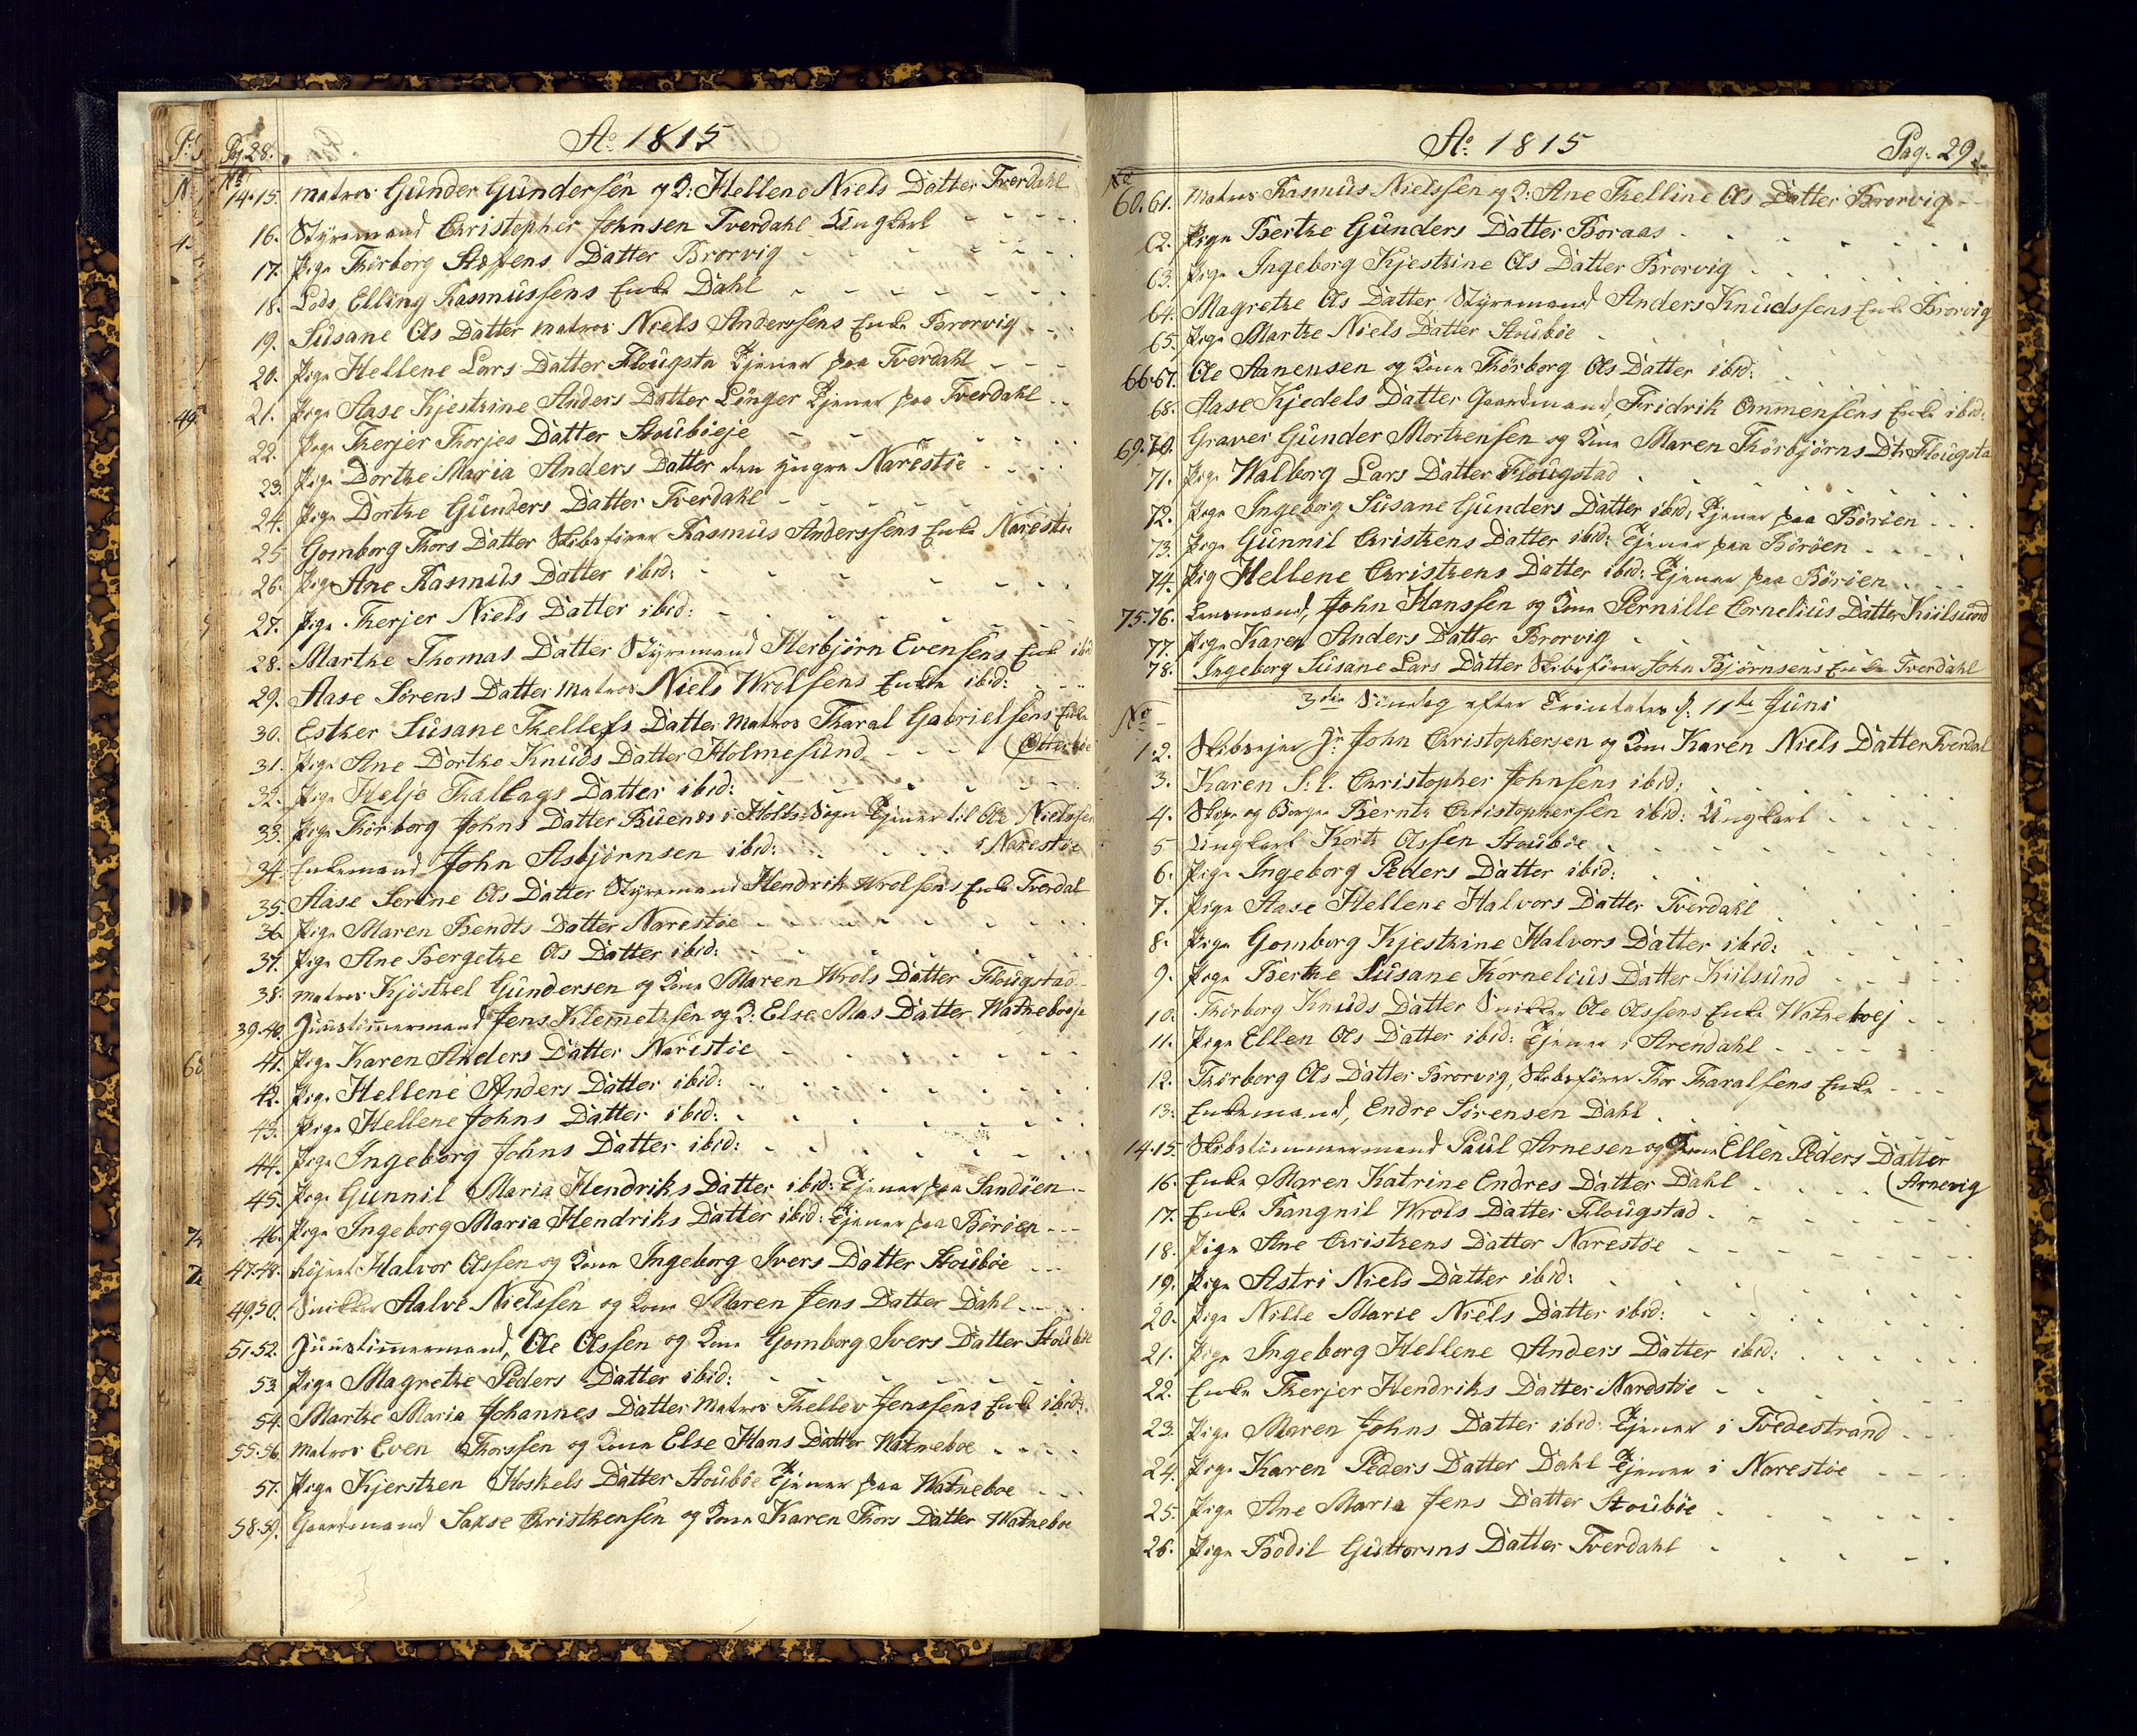 Pag. 28.
Ao 1815
No
14.15. Matros Gunder Gundersen og Q: Hellene Niels Datter Tverdahl
16. Styrmand Christopher Johnsen Tverdahl Ungkarl
17. Pige Thörborg Stephens Datter Brorvig
18. Lods, Elling Rasmussens Enke Dahl
19. Susane Ols Datter Matros Niels Anderssens Enke Brorvig
20. Pige Hellene Lars Datter Flougsta tjener paa Tverdahl
21. Pige Aase Kjestine Anders Datter Longer tjener paa Tverdahl
22. Pige Therjer Thorjes Datter Stouböeje
23. Pige Dorthe Maria Anders Datter den yngre Narestöe
24. Pige Dorthe Gunders Datter Tverdahl
25. Gomborg Thors Datter Skibsförer Rasmus Anderssens Enke Narestöe
26. Pige Ane Rasmus Datter ibid:
27. Pige Therjer Niels Datter ibid:
28. Marthe Thomas Datter Styrmand Herbjörn Evensens Enke ibid
29. Aase Sörens Datter Matros Niels Wrolsens Enke ibid:
30. Esther Susane Thellefs Datter Matros Tharal Gabrielsens Enke
31. Pige Ane Dorthe Knuds Datter Holmesund (Otterböe
32. Pige Helje Thallags Datter ibid:
33. Pige Thörborg Johns Datter Buenes i Holts Sogn tjener til Ole Nielssen
34. Enkemand John Asbjörnsen ibid: i Narestöe
35. Aase Serine Ols Datter Styrmand Hendrik Wrolsens Enke Tverdal
36. Pige Maren Bendts Datter Narestöe
37. Pige Ane Bergethe Ols Datter ibid:
38. Matros Kjösthel Gundersen og Kone Maren Wrols Datter Flougstad
39.40. Huustimermand Jens Klemetssen og Q: Else Mas Datter Watneboeje
41. Pige Karen Anders Datter Narestöe
42. Pige Hellene Anders Datter ibid:
43. Pige Hellene Johns Datter ibid:
44. Pige Ingeborg Johns Datter ibid:
45. Pige Gunnil Maria Hendriks Datter ibid: tjener paa Sandöen
46. Pige Ingeborg Maria Hendriks Datter ibid: tjener paa Böröen
47.48. Halvor Olssen og Kone Ingeborg Ivers Datter Stouböe
49.50. Snikker Aalve Nielssen og Kone Maren Jens Datter Dahl
51.52. Huustimermand, Ole Olssen og Kone Gomborg Ivers Datter Stouböe
53. Pige Magrethe Peders Datter ibid:
54. Marthe Maria Johannes Datter Matros Thellev Jenssens Enke ibid:
55.56. Matros Even Thorssen og Kone Else Hans Datter Watneboe
57. Pige Kjersthen Koskels Datter Stouböe tjener paa Watneboe
58.59. Gaardmand Saxse Christhensen og Kone Karen Thors Datter Watneboe
Ao 1815
Pag. 29
No
60.61. Matros Rasmus Nielssen og Q: Ane Thelline Ols Datter Brorvig
62. Pige Berthe Gunders Datter Boraas
63. Pige Ingeborg Kjesthine Ols Datter Brorvig
64. Magrethe Ols Datter, Styrmand Anders Knudssens Enke Brorvig
65. Pige Marthe Niels Datter Stouböe
66.67. Ole Aanensen og Kone Thörborg Ols Datter ibid:
68. Aase Kjedels Datter Gaardmand, Fridrik Ommensens Enke ibid:
69.70. Graver Gunder Morthensen og Kone Maren Thörbjörns Dtr Flougsta
71. Pige Walborg Lars Datter Flougstad
72. Pige Ingeborg Susane Gunders Datter ibid, tjener paa Böröen
73. Pige Gunnil Christhens Datter ibid: tjener paa Böröen
74. Pig Hellene Christhens Datter ibid: tjener paa Böröen
75.76. Lensmand, John Hanssen og Kone Pernille Cornelius Datter Kiilsund
77. Pige Karen Anders Datter Brorvig
78. Ingeborg Susane Lars Datter Skibsförer John Björnsens Enke Tverdahl
3die Söndag efter Trinitates d: 11te Juni
No
1.2. Skibsejer Hr John Christophersen og Kone Karen Niels Datter Tverdal
3. Karen S: l. Christopher Johnsens ibid:
4. Skipr og Borger Bernth Christophersen ibid: Ungkarl
5. Ungkarl Korth Olssen Stouböe
6. Pige Ingeborg Peders Datter ibid:
7. Pige Aase Hellene Halvors Datter Tverdahl
8. Pige Gomborg Kjesthine Halvors Datter ibid:
9. Pige Berthe Susane Kornelius Datter Kiilsund
10. Thörborg Knuds Datter Snikker Ole Olssens Enke Watneboej
11. Pige Ellen Ols Datter ibid: tjener i Arendahl
12. Thörborg Ols Datter Brorvig, Skibsförer Thor Tharalsens Enke
13. Enkemand, Endre Sörensen Dahl
14.15. Skibstimmermand Paul Arnesen og Kone Ellen Peders Datter
16. Enke Maren Katrine Endres Datter Dahl (Arnevig
17. Enke Rangnil Wrols Datter Flougstad
18. Pige Ane Christhens Datter Narestöe
19. Pige Astri Niels Datter ibid:
20. Pige Nille Marie Niels Datter ibid:
21. Pige Ingeborg Hellene Anders Datter ibid:
22. Enke Therjer Hendriks Datter Narestöe
23. Pige Maren Johns Datter ibid: tjener i Tvedestrand
24. Pige Karen Peders Datter Dahl tjener i Narestöe
25. Pige Ane Maria Jens Datter Stouböe
26. Pige Bodil Guttorms Datter Tverdahl